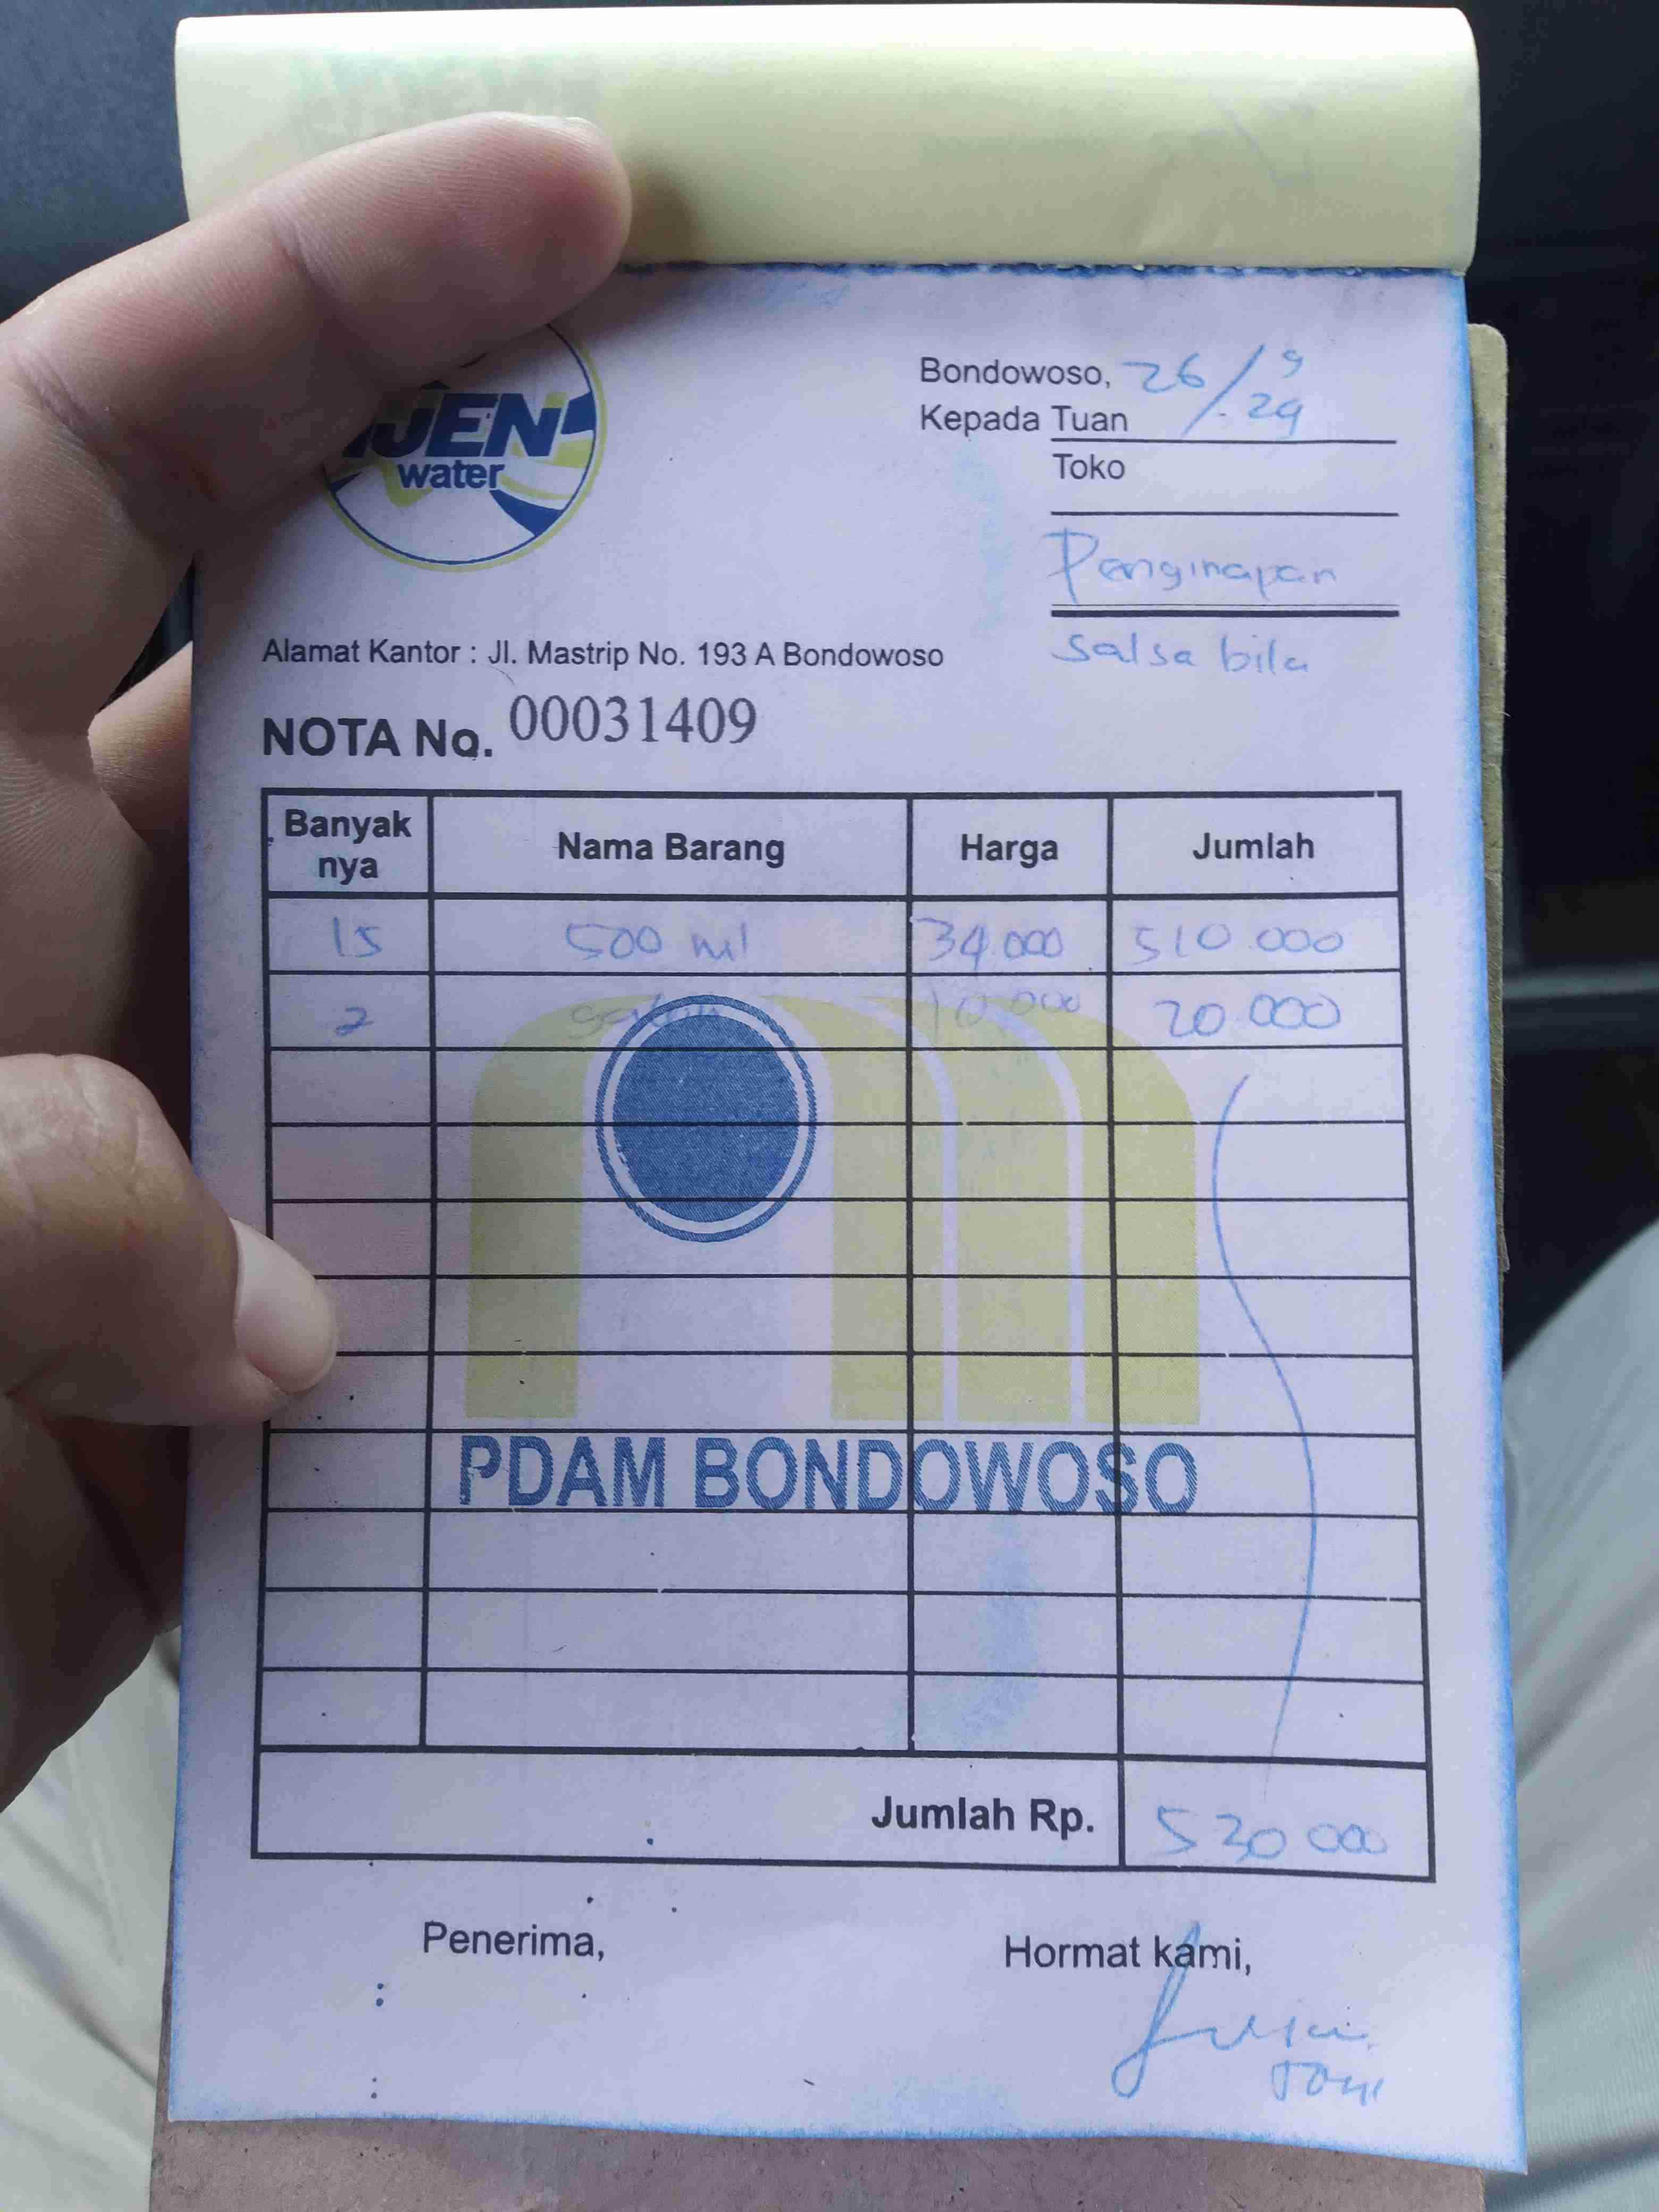 IJEN
water
Bondowoso, 26/9-24
Kepada Tuan
Toko
Penginapan
salsa bila
Alamat Kantor : Jl. Mastrip No. 193 A Bondowoso
NOTA No. 00031409
Banyak nya Nama Barang Harga Jumlah
15 500 ml 34.000 510.000
2 galon 10.000 20.000
PDAM BONDOWOSO
Jumlah Rp. 530 000
Penerima, Hormat kami,